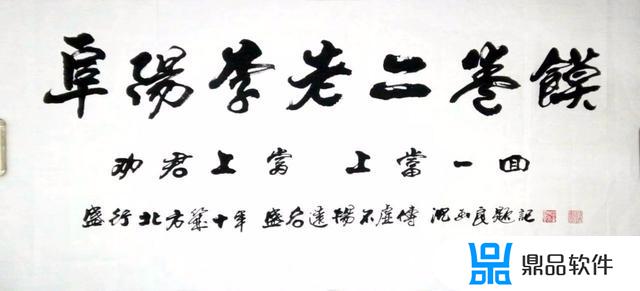 阜陽李老二卷饃
劝君上當 上當一回
盛行北方十年 盛名遠揚不虛傳 沈良題記
鼎品软件